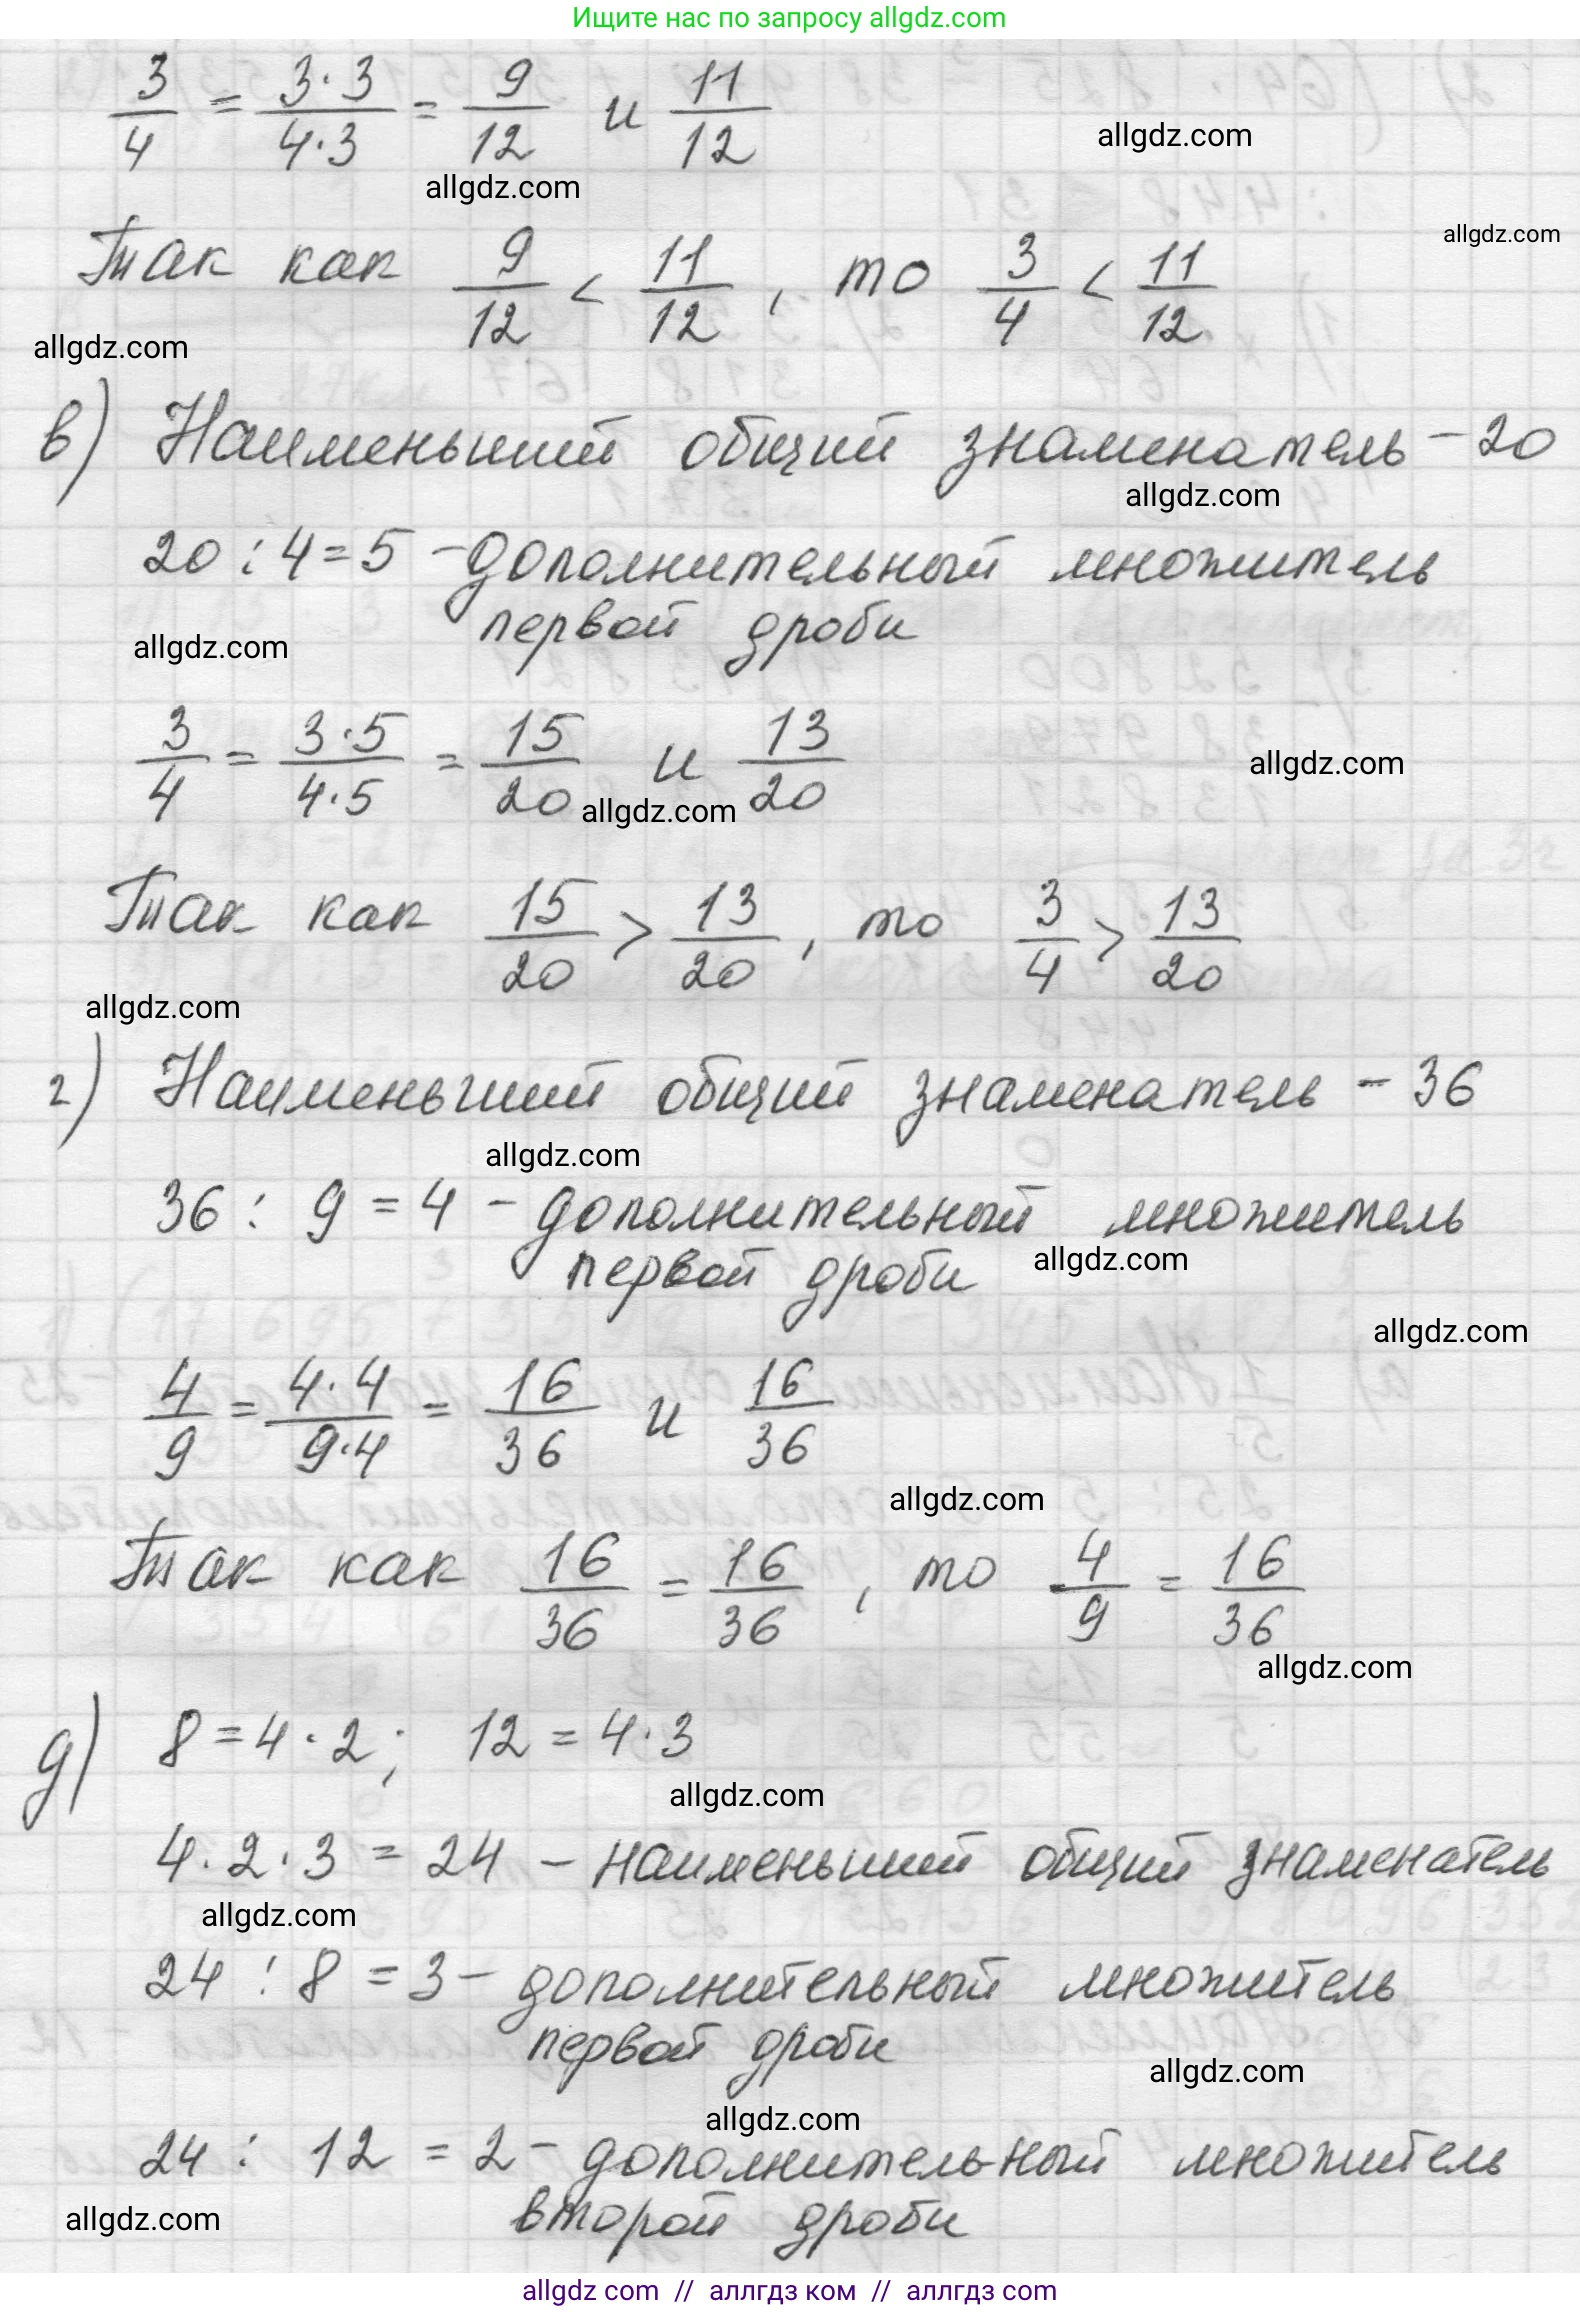 Ищите нас по запросу allgdz.com
3/4 = 3·3/4·3 = 9/12 и 11/12
allgdz.com
allgdz.com
allgdz.com
Так как 9/12 < 11/12, то 3/4 < 11/12
allgdz.com
в) Наименьший общий знаменатель - 20
allgdz.com
20 : 4 = 5 - дополнительный множитель
первой дроби
allgdz.com
3/4 = 3·5/4·5 = 15/20 и 13/20
allgdz.com
allgdz.com
Так как 15/20 > 13/20, то 3/4 > 13/20
allgdz.com
г) Наименьший общий знаменатель - 36
allgdz.com
36 : 9 = 4 - дополнительный множитель
первой дроби
allgdz.com
allgdz.com
4/9 = 4·4/9·4 = 16/36 и 16/36
allgdz.com
Так как 16/36 = 16/36, то 4/9 = 16/36
allgdz.com
д) 8 = 4·2; 12 = 4·3
allgdz.com
4·2·3 = 24 - наименьший общий знаменатель
allgdz.com
24 : 8 = 3 - дополнительный множитель
первой дроби
allgdz.com
allgdz.com
24 : 12 = 2 - дополнительный множитель
второй дроби
allgdz.com
allgdz com // аллгдз ком // аллгдз com